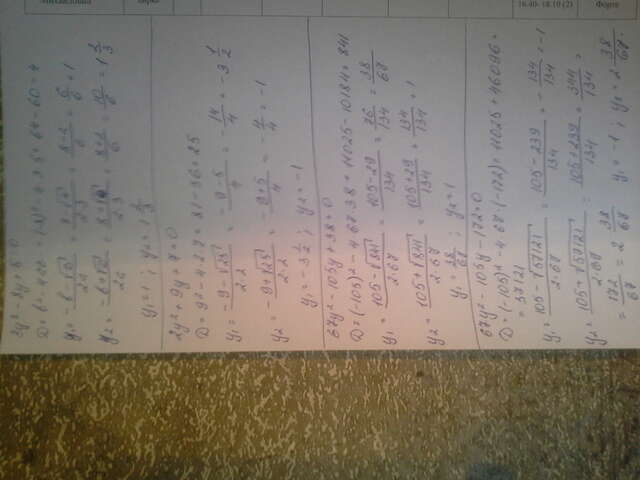 3y² - 8y + 5 = 0
D = b² - 4ac = (-8)² - 4·3·5 = 64 - 60 = 4
y₁ = (-b - √D)/2a = (8 - √4)/(2·3) = (8 - 2)/6 = 6/6 = 1
y₂ = (-b + √D)/2a = (8 + √4)/(2·3) = (8 + 2)/6 = 10/6 = 1 2/3
y₁ = 1 ; y₂ = 1 2/3
2y² + 9y + 7 = 0
D = 9² - 4·2·7 = 81 - 56 = 25
y₁ = (-9 - √25)/(2·2) = (-9 - 5)/4 = -14/4 = -3 1/2
y₂ = (-9 + √25)/(2·2) = (-9 + 5)/4 = -4/4 = -1
y₁ = -3 1/2 ; y₂ = -1
67y² - 105y + 38 = 0
D = (-105)² - 4·67·38 = 11025 - 10184 = 841
y₁ = (105 - √841)/(2·67) = (105 - 29)/134 = 76/134 = 38/67
y₂ = (105 + √841)/(2·67) = (105 + 29)/134 = 134/134 = 1
y₁ = 38/67 ; y₂ = 1
67y² - 105y - 172 = 0
D = (-105)² - 4·67·(-172) = 11025 + 46096 =
= 57121
y₁ = (105 - √57121)/(2·67) = (105 - 239)/134 = -134/134 = -1
y₂ = (105 + √57121)/(2·67) = (105 + 239)/134 = 344/134 =
= 172/67 = 2 38/67 y₁ = -1 ; y₂ = 2 38/67